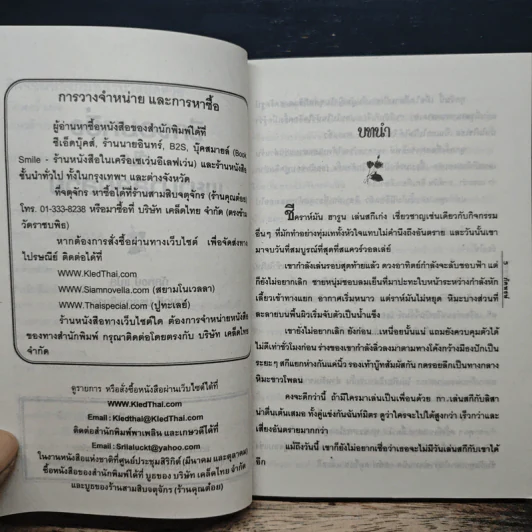 การวางจำหน่าย และการหาซื้อ
ผู้อ่านหาซื้อหนังสือของสำนักพิมพ์ได้ที่
ซีเอ็ดบุ๊คส์, ร้านนายอินทร์, B2S, บุ๊คสมายล์ (Book
Smile - ร้านหนังสือในเครือเซเว่นอีเลฟเว่น) และร้านหนังสือ
ชั้นนำทั่วไป ทั้งในกรุงเทพฯ และต่างจังหวัด
ที่จตุจักร หาซื้อได้ที่ร้านสามสิบจตุจักร (ร้านคุณต๋อย)
โทร. 01-333-8238 หรือมาซื้อที่ บริษัท เคล็ดไทย จำกัด (ตรงข้าม
วัดราชบพิธ)
หากต้องการสั่งซื้อผ่านทางเว็บไซต์ เพื่อจัดส่งทาง
ไปรษณีย์ ติดต่อได้ที่
WWW.KledThai.com
WWW.Siamnovella.com (สยามโนเวลลา)
WWW.Thaispecial.com (ปูทะเลย์)
ร้านหนังสือทางเว็บไซต์ใด ต้องการจำหน่ายหนังสือ
ของทางสำนักพิมพ์ กรุณาติดต่อโดยตรงกับ บริษัท เคล็ดไทย
จำกัด
ดูรายการ หรือสั่งซื้อหนังสือผ่านเว็บไซต์ได้ที่
WWW.KledThai.com
Email : Kledthai@KledThai.com
ติดต่อสำนักพิมพ์พาเพลิน และเกษวดีได้ที่
Email : Srilaluckt@yahoo.com
ในงานหนังสือแห่งชาติที่ศูนย์ประชุมสิริกิติ์ (มีนาคม และตุลาคม)
ซื้อหนังสือของสำนักพิมพ์ได้ที่ บูธของ บริษัท เคล็ดไทย จำกัด
และบูธของร้านสามสิบจตุจักร (ร้านคุณต๋อย)
บทนำ
ชีคราห์มัน ฮารูน เล่นสกีเก่ง เชี่ยวชาญเช่นเดียวกับกิจกรรม
อื่นๆ ที่มักทำอย่างทุ่มเททั้งหัวใจแทบไม่คำนึงถึงอันตราย และวันนั้นเขา
มาจบวันที่สมบูรณ์ที่สุดที่สแควร์วอลเล่ย์
เขากำลังเล่นรอบสุดท้ายแล้ว ดวงอาทิตย์กำลังจะลับขอบฟ้า แต่
ก็ยังไม่อยากเลิก ชายหนุ่มชอบลมเย็นที่มาปะทะใบหน้าระหว่างกำลังหัก
เลี้ยวเข้าทางแยก อากาศเริ่มหนาว แต่ราห์มันไม่หยุด หิมะบางส่วนที่
ละลายบนพื้นผิวเริ่มจับตัวเป็นน้ำแข็ง
เขายังไม่อยากเลิก ยังก่อน...เหนื่อยนั้นแน่ แถมยังควบคุมตัวได้
ไม่ดีเท่าชั่วโมงก่อน
คงจะดีกว่านี้ ถ้ามีใครมาเล่นเป็นเพื่อนด้วย
เสี่ยงอันตรายมากกว่า
แม้ถึงวันนี้ เขาก็ยังไม่อยากเชื่อว่าเธอจะไม่มีวันเล่นสกีกับเขาได้
อีก